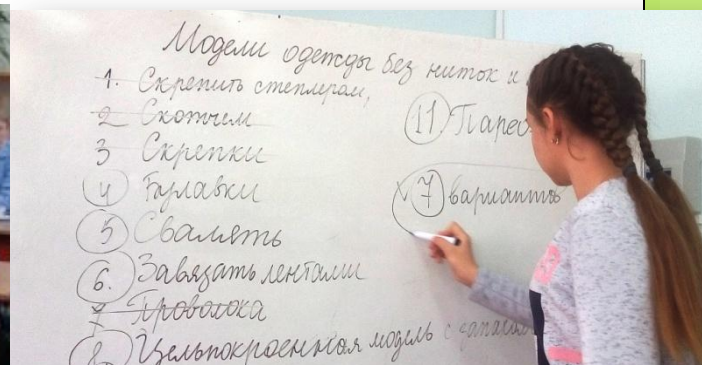 Модели одежды без ниток и
1. Скрепить степлером,
2 Скотчем
3 Скрепки
4 Булавки
5 Свалять
6. Завязать лентами
7 Проволока
8. Цельнокроенная модель с запахом
11 Парео
7 вариантов